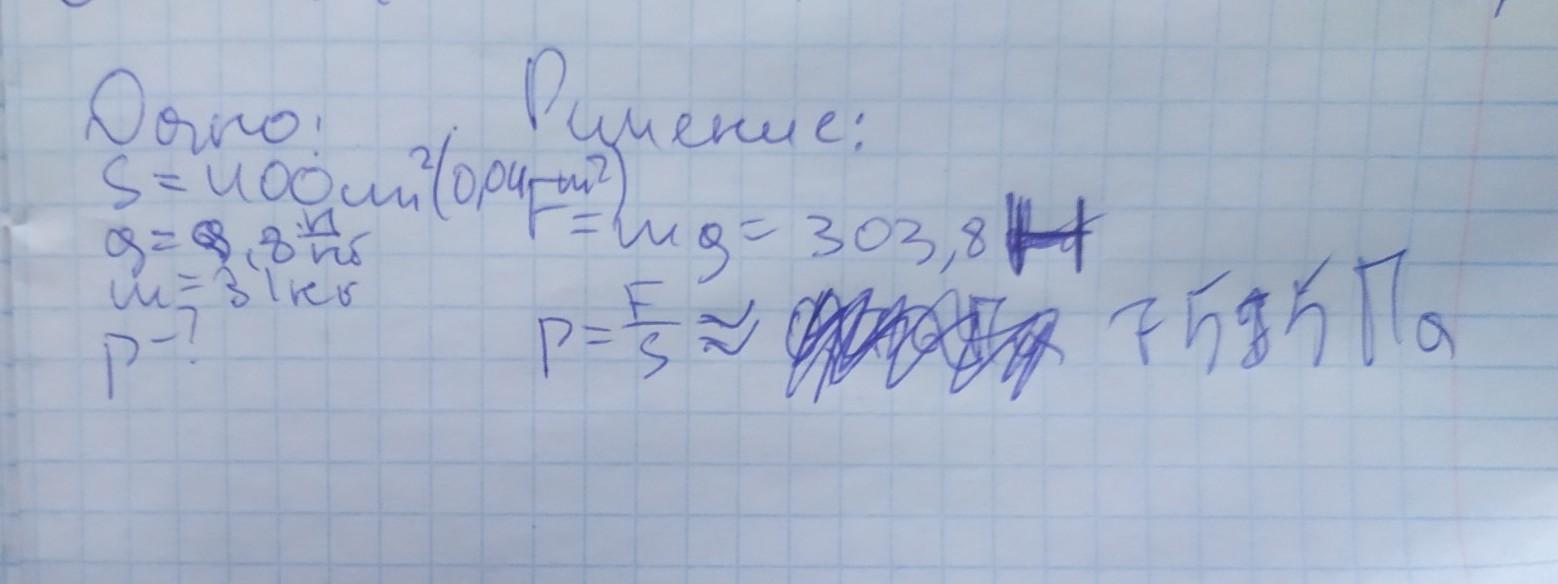 Дано:
S = 400 см² (0,04 м²)
g = 9,8 Н/кг
m = 31 кг
p - ?
Решение:
F = mg = 303,8 Н
p = F/S ≈ 7595 Па